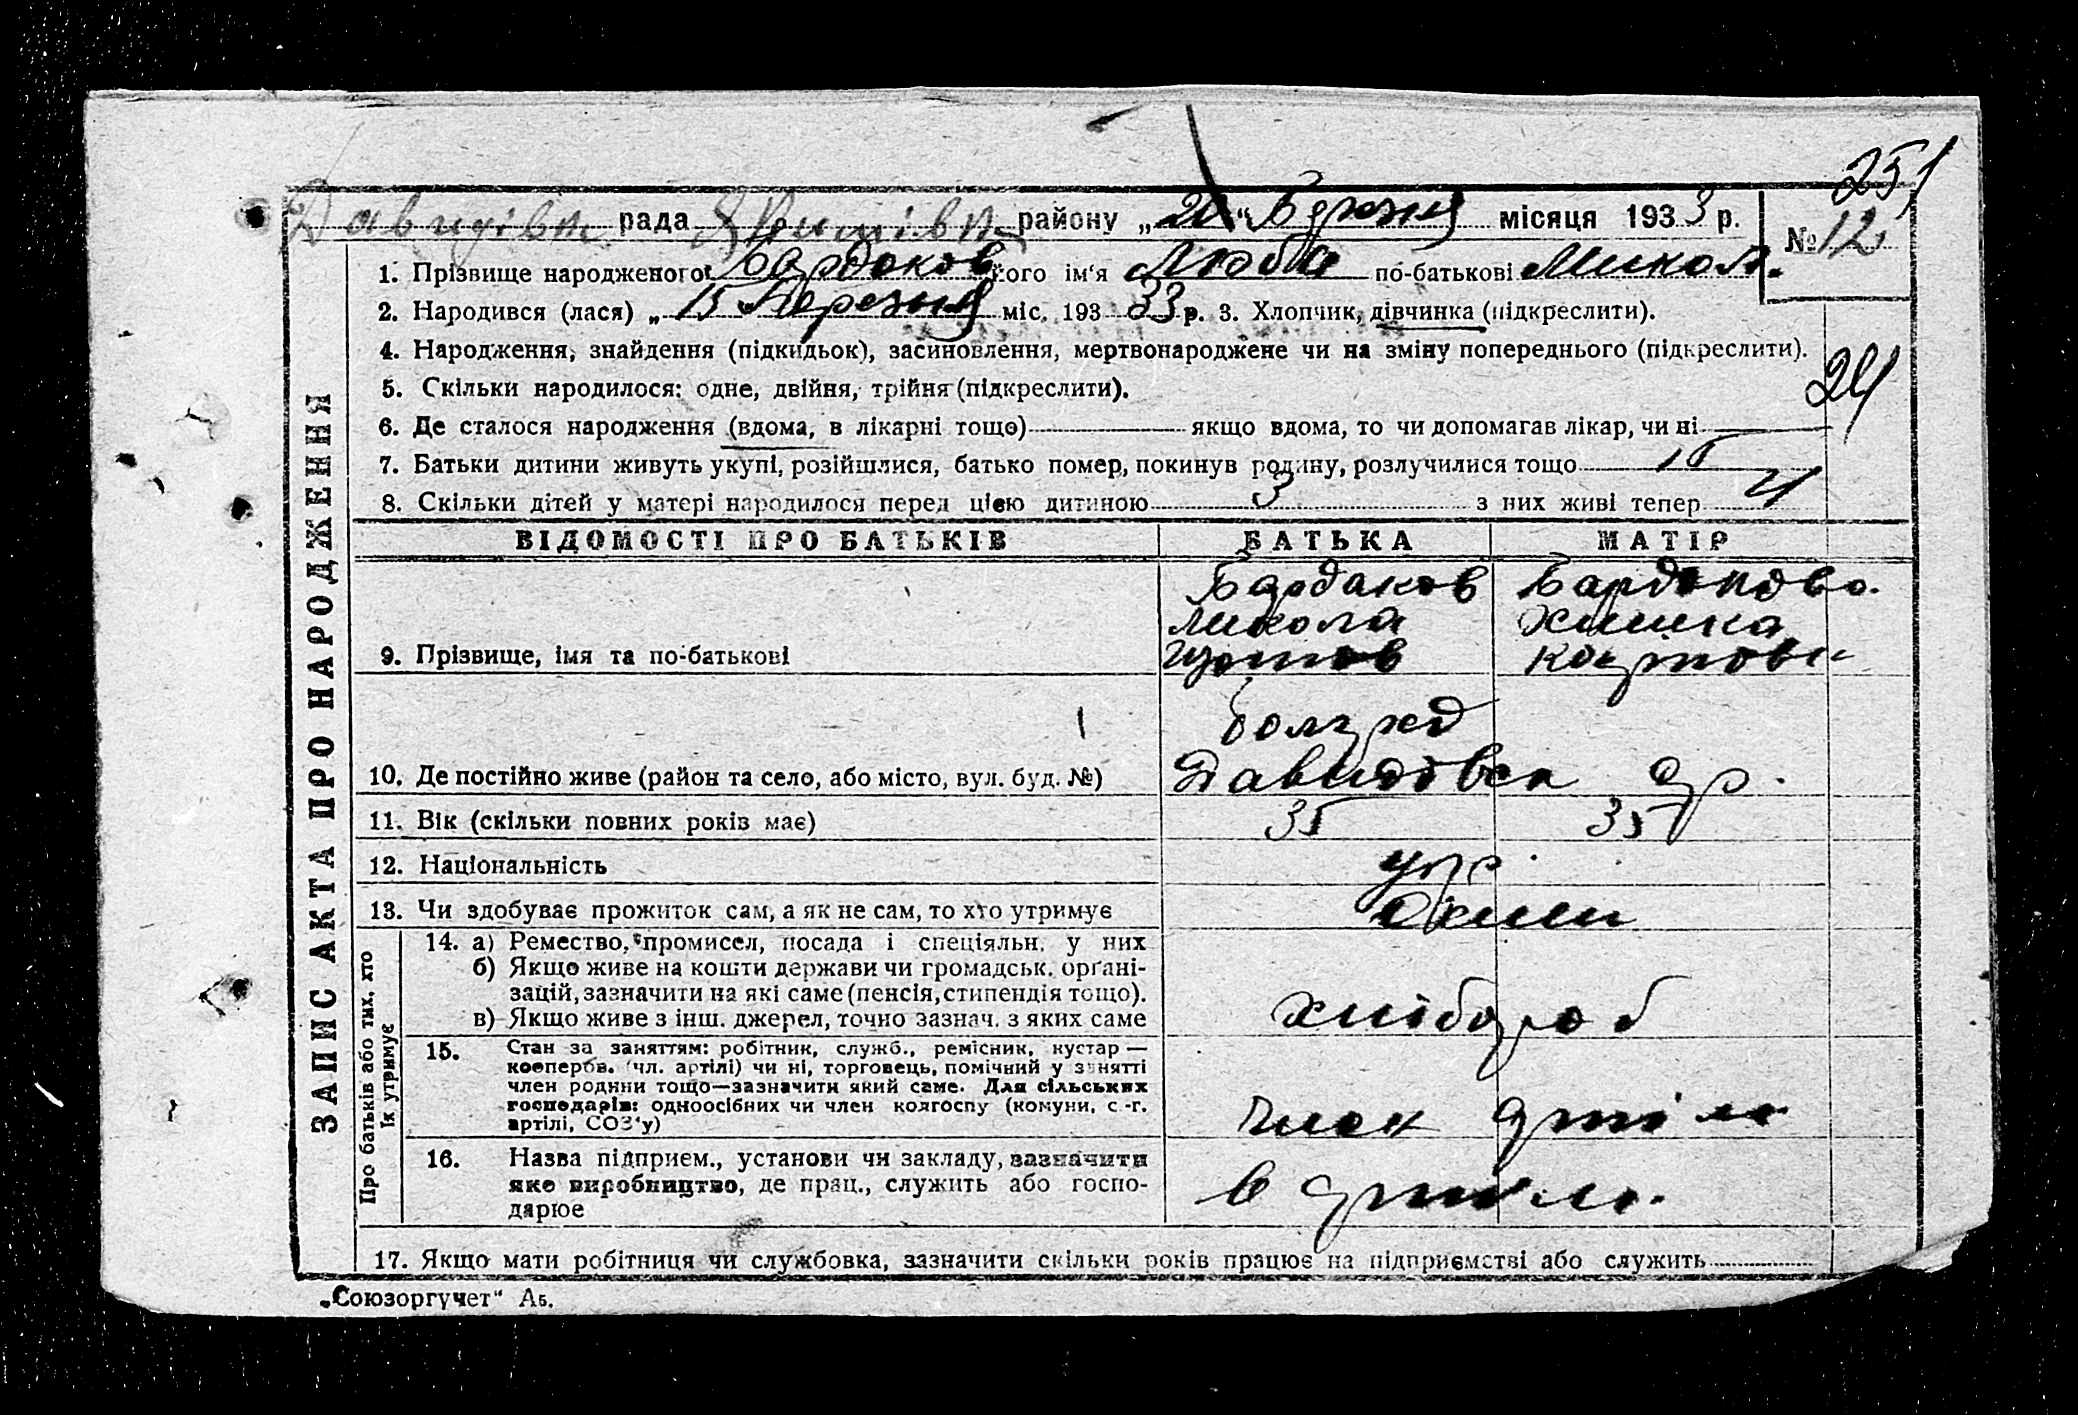 251
Давидівськ рада району „20“ Березня місяця 1933 р. № 12
ЗАПИС АКТА ПРО НАРОДЖЕННЯ
1. Прізвище народженого Бардаков його ім'я Люба по-батькові Микол.
2. Народився (лася) „15 Березня міс. 193 33 р. 3. Хлопчик, дівчинка (підкреслити).
4. Народження, знайдення (підкидьок), засиновлення, мертвонароджене чи на зміну попереднього (підкреслити).
24
5. Скільки народилося: одне, двійня, трійня (підкреслити).
6. Де сталося народження (вдома, в лікарні тощо) якщо вдома, то чи допомагав лікар, чи ні
7. Батьки дитини живуть укупі, розійшлися, батько помер, покинув родину, розлучилися тощо
8. Скільки дітей у матері народилося перед цією дитиною 3 з них живі тепер 4
ВІДОМОСТІ ПРО БАТЬКІВ БАТЬКА МАТІР
Бардаков Бардакова.
Микола
9. Прізвище, імя та по-батькові
10. Де постійно живе (район та село, або місто, вул. буд. №) Давидовка
11. Вік (скільки повних років має) 35 35
12. Національність укр
13. Чи здобуває прожиток сам, а як не сам, то хто утримує
Про батьків або тих, хто їх утримує
14. а) Ремество, промисел, посада і спеціяльн. у них
б) Якщо живе на кошти держави чи громадськ. орґані-
зацій, зазначити на які саме (пенсія, стипендія тощо).
в) Якщо живе з інш. джерел, точно зазнач. з яких саме хлібороб
15. Стан за заняттям: робітник, служб., ремісник, кустар —
кооперов. (чл. артілі) чи ні, торговець, помічний у занятті
член родини тощо—зазначити який саме. Для сільських
господарів: одноосібних чи член колгоспу (комуни, с.-г.
артілі, СОЗ'у) член артілі
16. Назва підприєм., установи чи закладу, зазначити
яке виробництво, де прац., служить або госпо-
дарює в артіл.
17. Якщо мати робітниця чи службовка, зазначити скільки років працює на підприємстві або служить
„Союзоргучет“ А5.